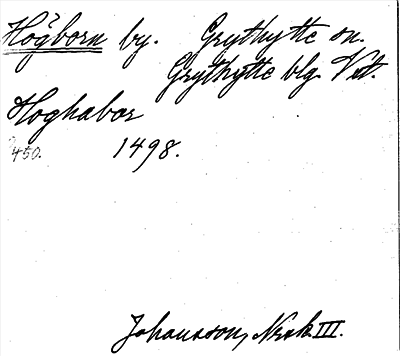 Högborn by. Grythytte sn.
Grythytte blg. Vst.
Hoghabor
450. 1498.
Johansson, Nerik III.